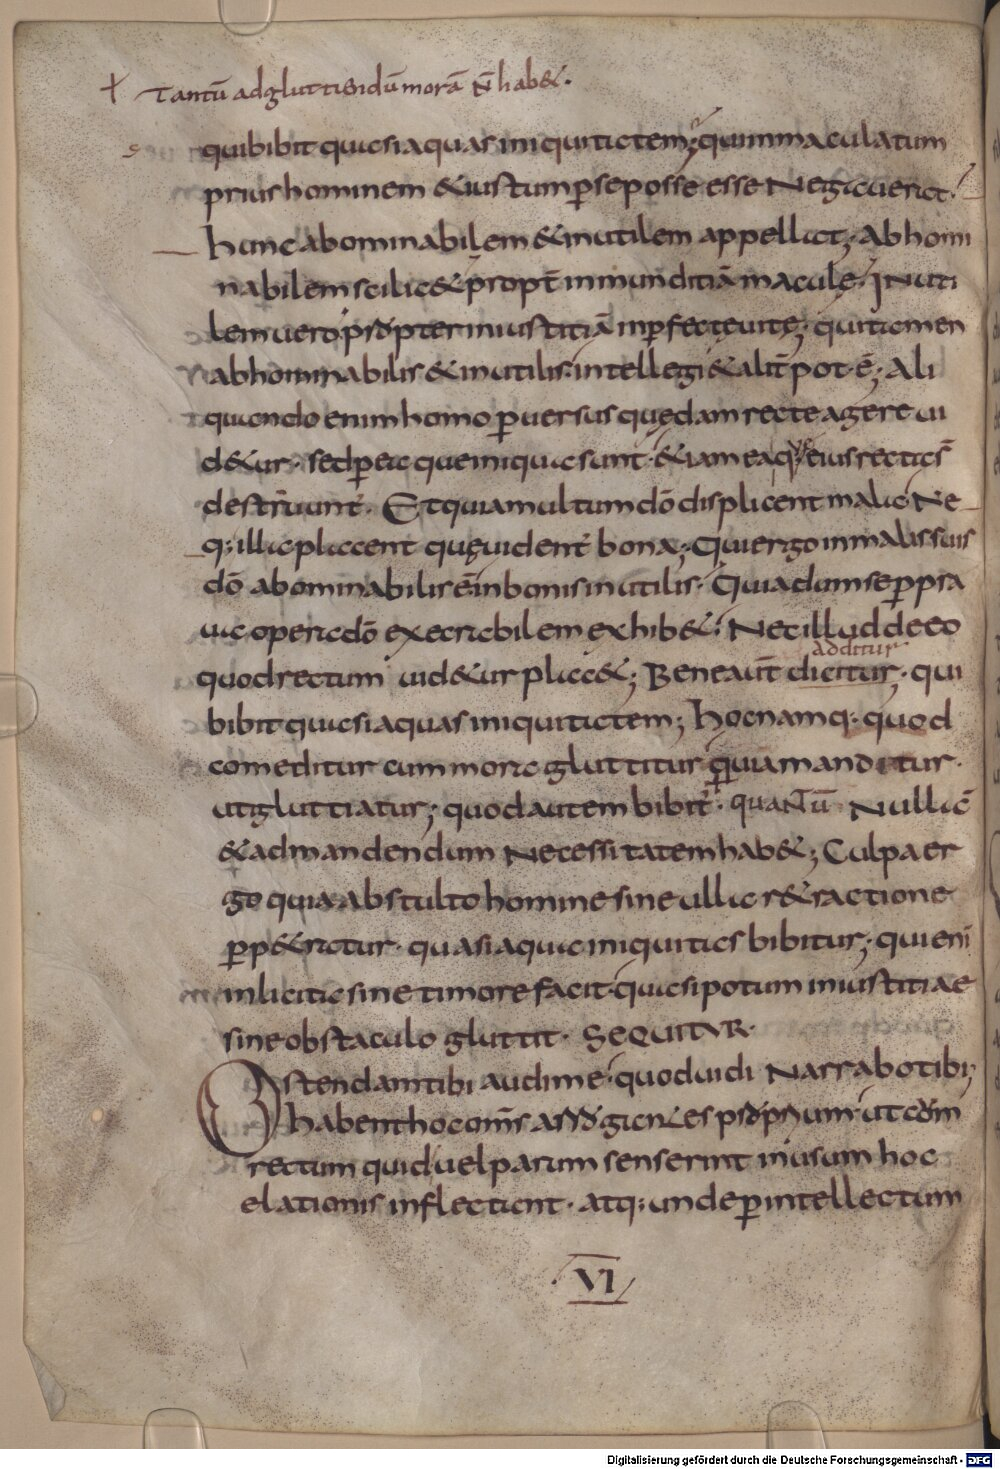 + Tantū adgluttiendū morā n̄ hab&.
qui bibit quasi aquas iniquitatem; qui inmaculatum
prius hominem & iustum per se posse esse negauerat.
hunc abominabilem & inutilem appellat; Abhomi
nabilem scilic& propt̄ inmunditiā maculę. Inuti
lem uero propter iniustitiā inperfectę uitę; qui tamen
abhominabilis & inutilis intellegi & alit̄ pot ē; Ali
quando enim homo peruersus quędam recte agere ui
d&ur. sed per ea que iniqua sunt. &iam ea quę eius recta s̄
destruunt. Et quia multum dō displicent mala. Ne
q; illa placent quę uident bona; Qui ergo in malis suis
dō abominabilis ē in bonis inutilis. Quia dum se per pra
ua opera dō execrabilem exhib&. Nec illud de eo
additur
quod rectum uid&ur plac&; Bene aūt dicitur. qui
bibit quasi aquas iniquitatem; hoc namq. quod
comeditur cum mora gluttitur quia manditur.
ut gluttiatur; quod autem bibit. quantū nullā
& ad mandendum necessitatem hab&; Culpa er
go quia ab stulto homine sine ulla r&ractione
perp&ratur. quasi aqua iniquitas bibitur; qui eni
inlicita sine timore facit. quasi potum iniustitiae
sine obstaculo gluttit. SEQUITUR.
Ostendam tibi audi me. quod uidi narrabo tibi;
habent hoc om̄s arrogantes proprium. ut cum
rectum quid uel parum senserint in usum hoc
elationis inflectant. atq; unde per intellectum
VI
Digitalisierung gefördert durch die Deutsche Forschungsgemeinschaft - DFG